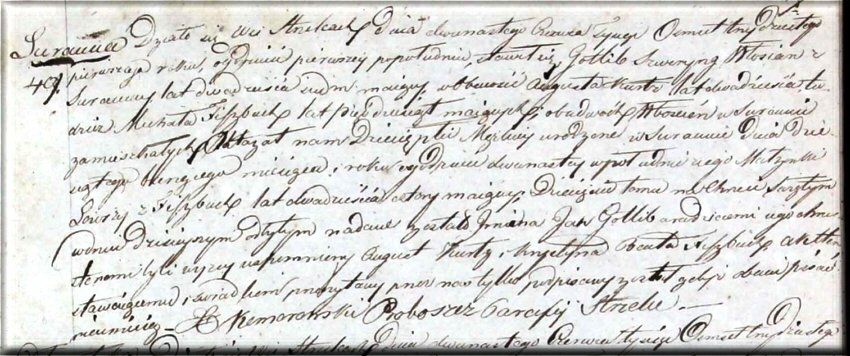 Surawina Działo się we wsi Strzelcach dnia dwunastego Czerwca Tysiąc Osmset trzydziestego
49. pierwszego roku, o godzinie pierwszej popołudniu, stawił się Gottlib Szweryng Włosian z
Surawiny lat dwadzieścia siedm maiący w obecności Augusta Kurtz lat dwadzieścia tu-
dzież Michała Fiszbuch lat pięćdziesiąt maiących, obudwóch Włoscian w Surawinie
zamieszkałych Okazał nam Dziecię płci Męzkiey urodzone w Surawinie dnia Dzie-
siątego bieżącego miesiąca i roku o godzinie dwunastey w południe z iego Małżonki
Lowizy z Fiszbuch lat dwadzieścia cztery maiącey Dziecięciu temu na Chrzcie Swiętym
w dniu dzisieyszym odbytym nadane zostało Imiona Jan Gottlib a rodzicami iego chrze-
stnemi byli wyżey wspomniony August Kurtz i Beata Fiszbuch Akt ten
stawaiącemu i swiadkom przeczytany przez nas tylko podpisany został gdyż obecni pisać
nieumieią — X Kemoroski Proboszcz Parafij Strzelce —
dnia dwunastego Czerwca tysiąc Osmset trzydziestego